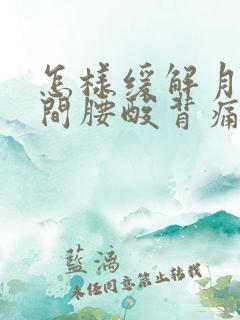 怎樣緩解月
間腰酸背痛
藍漓
未经同意禁止转载